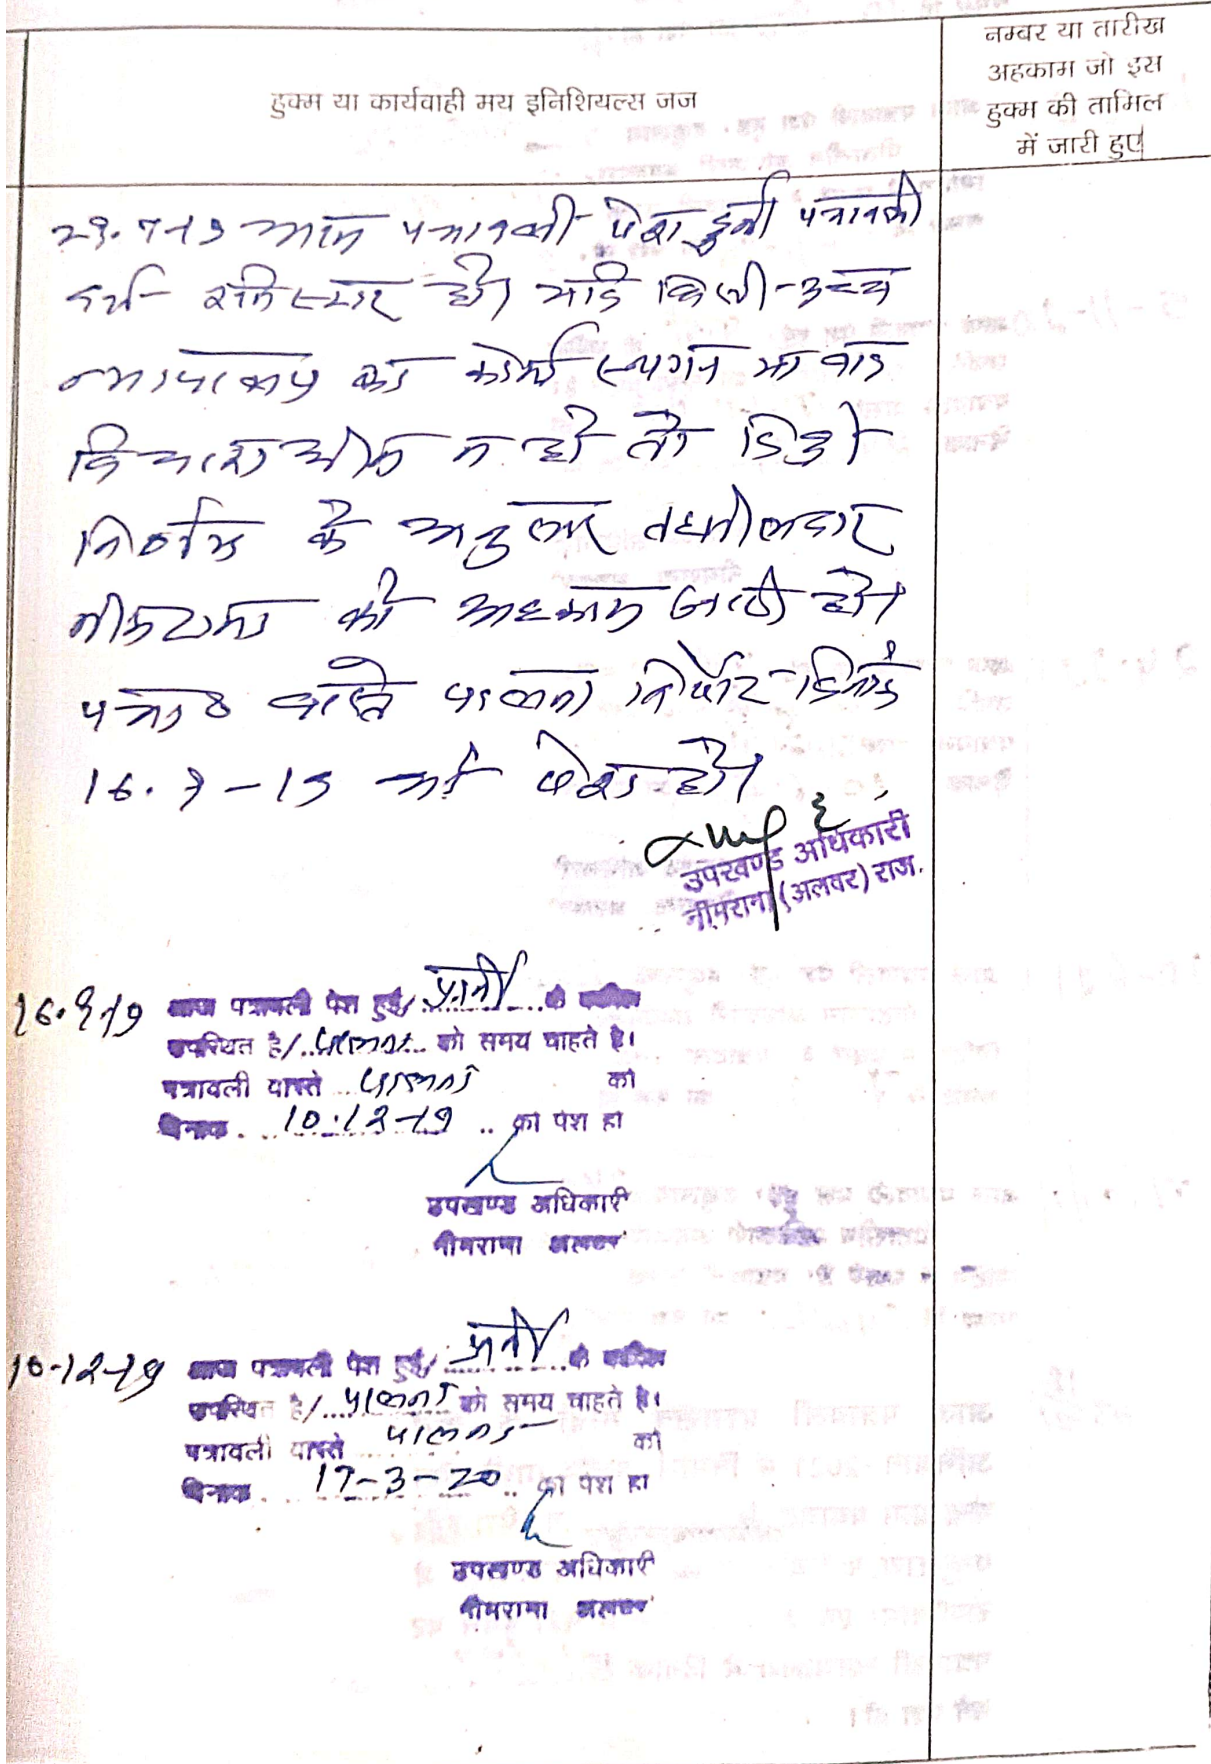 हुक्म या कार्यवाही मय इनिशियल्स जज
नम्बर या तारीख
अहकाम जो इस
हुक्म की तामिल
में जारी हुए
29.7.19 आज पत्रावली पेश हुई पत्रावली
दर्ज रजिस्टर हो। यदि किसी उच्च
न्यायालय का कोई स्थगन या वाद
विचाराधीन न हो तो डिक्री
निर्णय के अनुसार तहसीलदार
नीमराना को अहकाम जारी हो।
वास्ते पालना रिपोर्ट दिनांक
को पेश हो।
उपखण्ड अधिकारी
नीमराना (अलवर) राज.
16.9.19 आज पत्रावली पेश हुई/ प्रार्थी के वकील
उपस्थित है/ पालना को समय चाहते है।
पत्रावली वास्ते पालना को
दिनांक 10.12-19 को पेश हो
उपखण्ड अधिकारी
नीमराना अलवर
10-12-19 आज पत्रावली पेश हुई/ प्रार्थी के वकील
उपस्थित है/ पालना को समय चाहते है।
पत्रावली वास्ते पालना को
दिनांक 17-3-20 को पेश हो
उपखण्ड अधिकारी
नीमराना अलवर